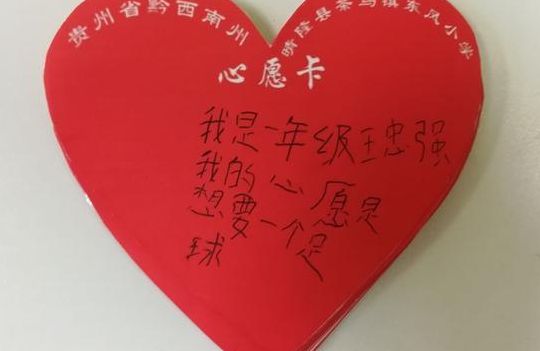 贵州省黔西南州
晴隆县茶马镇东风小学
心愿卡
我是一年级王忠强
我的心愿是
想要一个足
球